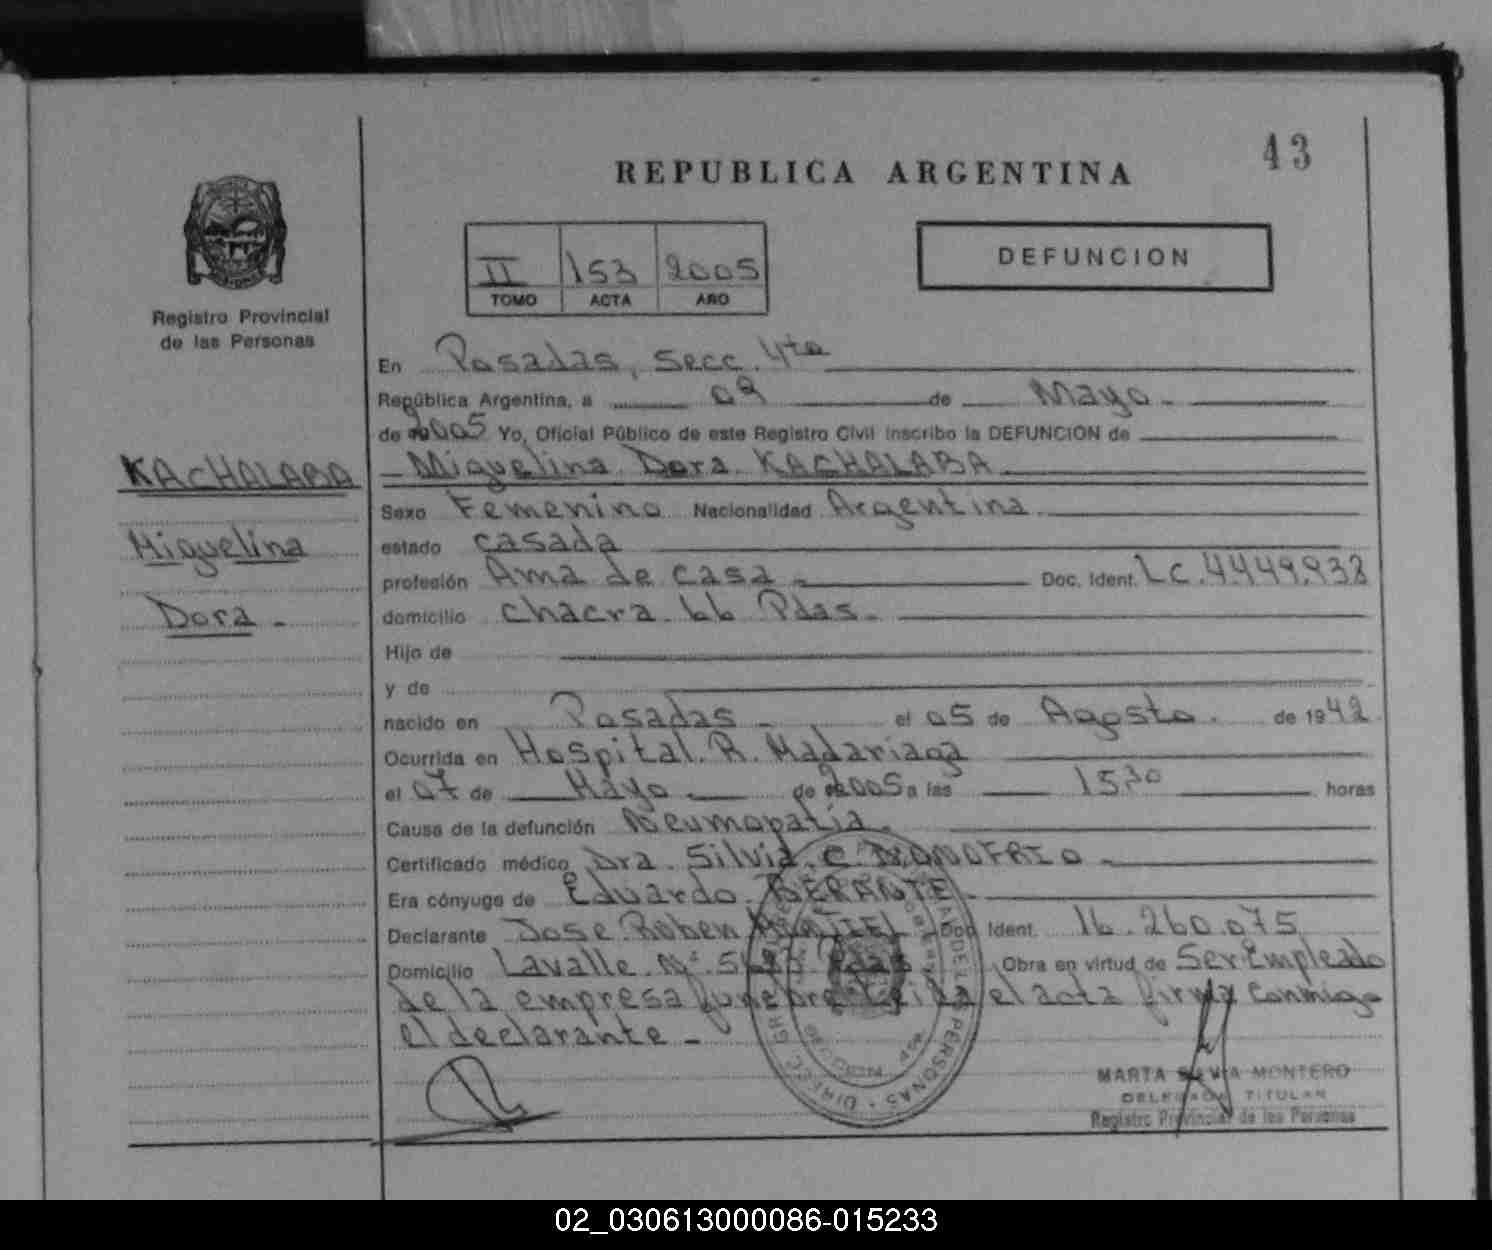 43
REPUBLICA ARGENTINA
II 153 2005
TOMO ACTA AÑO
DEFUNCION
Registro Provincial
de las Personas
En Posadas, Secc. 4ta
República Argentina, a 09 de Mayo
de 2005 Yo, Oficial Público de este Registro Civil inscribo la DEFUNCION de
KACHALABA
Miguelina Dora KACHALABA
Sexo Femenino Nacionalidad Argentina
Miguelina
estado casada
profesión Ama de casa Doc. Ident. L.C. 4.449.938
Dora
domicilio chacra 66 Pdas.
Hijo de
y de
nacido en Posadas el 05 de Agosto de 1942
Ocurrida en Hospital R. Madariaga
el 07 de Mayo de 2005 a las 15,30 horas
Causa de la defunción Neumopatía
Certificado médico Dra. Silvia C. DONOFRIO
Era cónyuge de Eduardo
Declarante Jose Ruben Doc. Ident. 16.260.075
Domicilio Lavalle Nº Pdas Obra en virtud de Ser Empleado
de la empresa funebre Leida el acta firma conmigo
el declarante
DE LAS PERSONAS
MARTA SILVIA MONTERO
DELEGADA TITULAR
Registro Provincial de las Personas
02_030613000086-015233